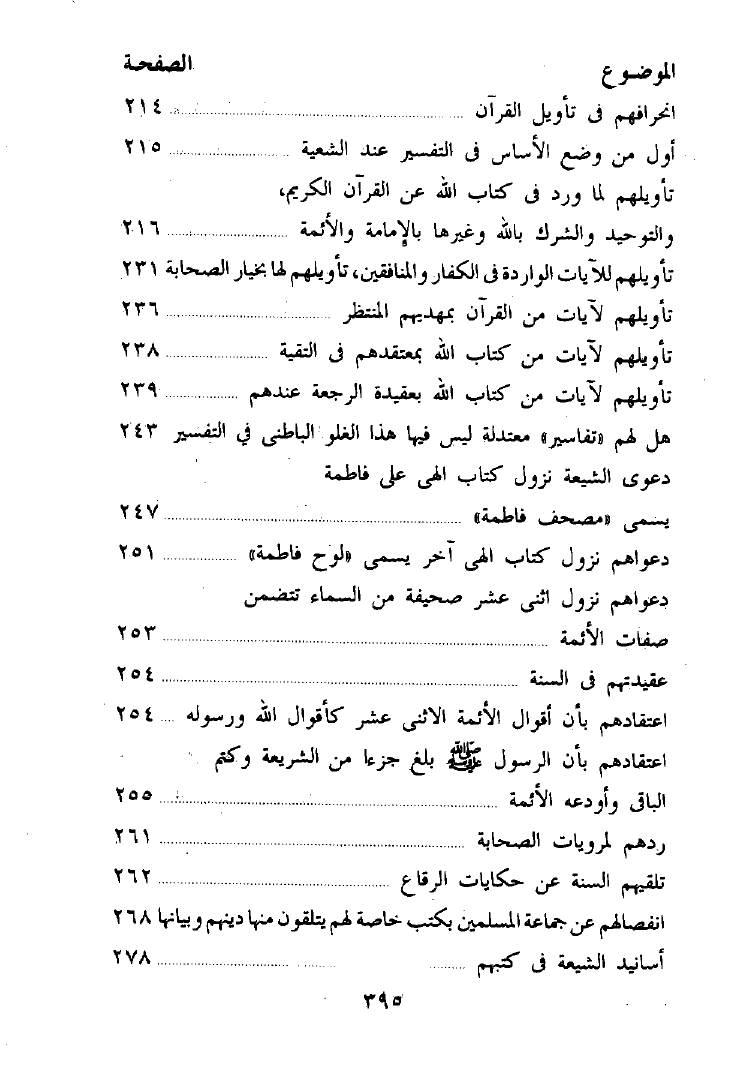 الموضوع الصفحة
انحرافهم فى تأويل القرآن ٢١٤
أول من وضع الأساس فى التفسير عند الشعية ٢١٥
تأويلهم لما ورد فى كتاب الله عن القرآن الكريم،
والتوحيد والشرك بالله وغيرها بالإمامة والأئمة ٢١٦
تأويلهم للآيات الواردة فى الكفار والمنافقين، تأويلهم لها بخيار الصحابة ٢٣١
تأويلهم لآيات من القرآن بمهديهم المنتظر ٢٣٦
تأويلهم لآيات من كتاب الله بمعتقدهم فى التقية ٢٣٨
تأويلهم لآيات من كتاب الله بعقيدة الرجعة عندهم ٢٣٩
هل لهم «تفاسير» معتدلة ليس فيها هذا الغلو الباطنى في التفسير ٢٤٣
دعوى الشيعة نزول كتاب الهى على فاطمة
يسمى «مصحف فاطمة» ٢٤٧
دعواهم نزول كتاب الهى آخر يسمى «لوح فاطمة» ٢٥١
دعواهم نزول اثنى عشر صحيفة من السماء تتضمن
صفات الأئمة ٢٥٣
عقيدتهم فى السنة ٢٥٤
اعتقادهم بأن أقوال الأئمة الاثنى عشر كأقوال الله ورسوله ٢٥٤
اعتقادهم بأن الرسول ﷺ بلغ جزءا من الشريعة وكتم
الباقى وأودعه الأئمة ٢٥٥
ردهم لمرويات الصحابة ٢٦١
تلقيهم السنة عن حكايات الرقاع ٢٦٢
انفصالهم عن جماعة المسلمين بكتب خاصة لهم يتلقون منها دينهم وبيانها ٢٦٨
أسانيد الشيعة فى كتبهم ٢٧٨
٣٩٥